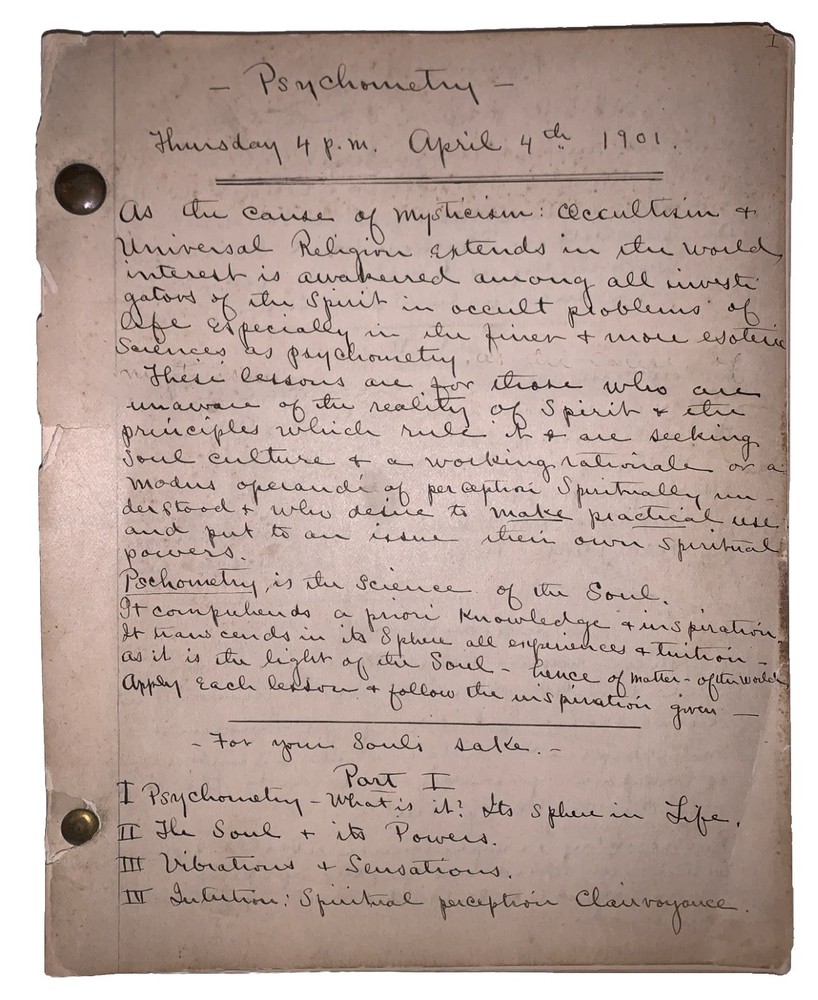 I
- Psychometry -
Thursday 4 p.m. April 4th 1901.
As the cause of mysticism: Occultism &
Universal Religion extends in the world,
interest is awakened among all investi
gators of the Spirit in occult problems of
life Especially in the finer & more esoteric
Sciences as psychometry
These lessons are for those who are
unaware of the reality of Spirit & the
principles which rule it & are seeking
Soul culture & a working rationale or a
modus operandi of perception Spiritually un-
derstood & who desire to make practical use
and put to an issue their own Spiritual
powers.
Pschometry, is the Science of the Soul.
It comprehends a priori Knowledge & inspiration
It transcends in its Sphere all experiences & tuition -
as it is the light of the Soul - hence of matter - of the world,
Apply Each lesson & follow the inspiration given —
- For your Souls sake. -
Part I
I Psychometry - What is it? Its Sphere in Life.
II The Soul & its Powers.
III Vibrations & Sensations.
IV Intuition: Spiritual perception Clairvoyance.